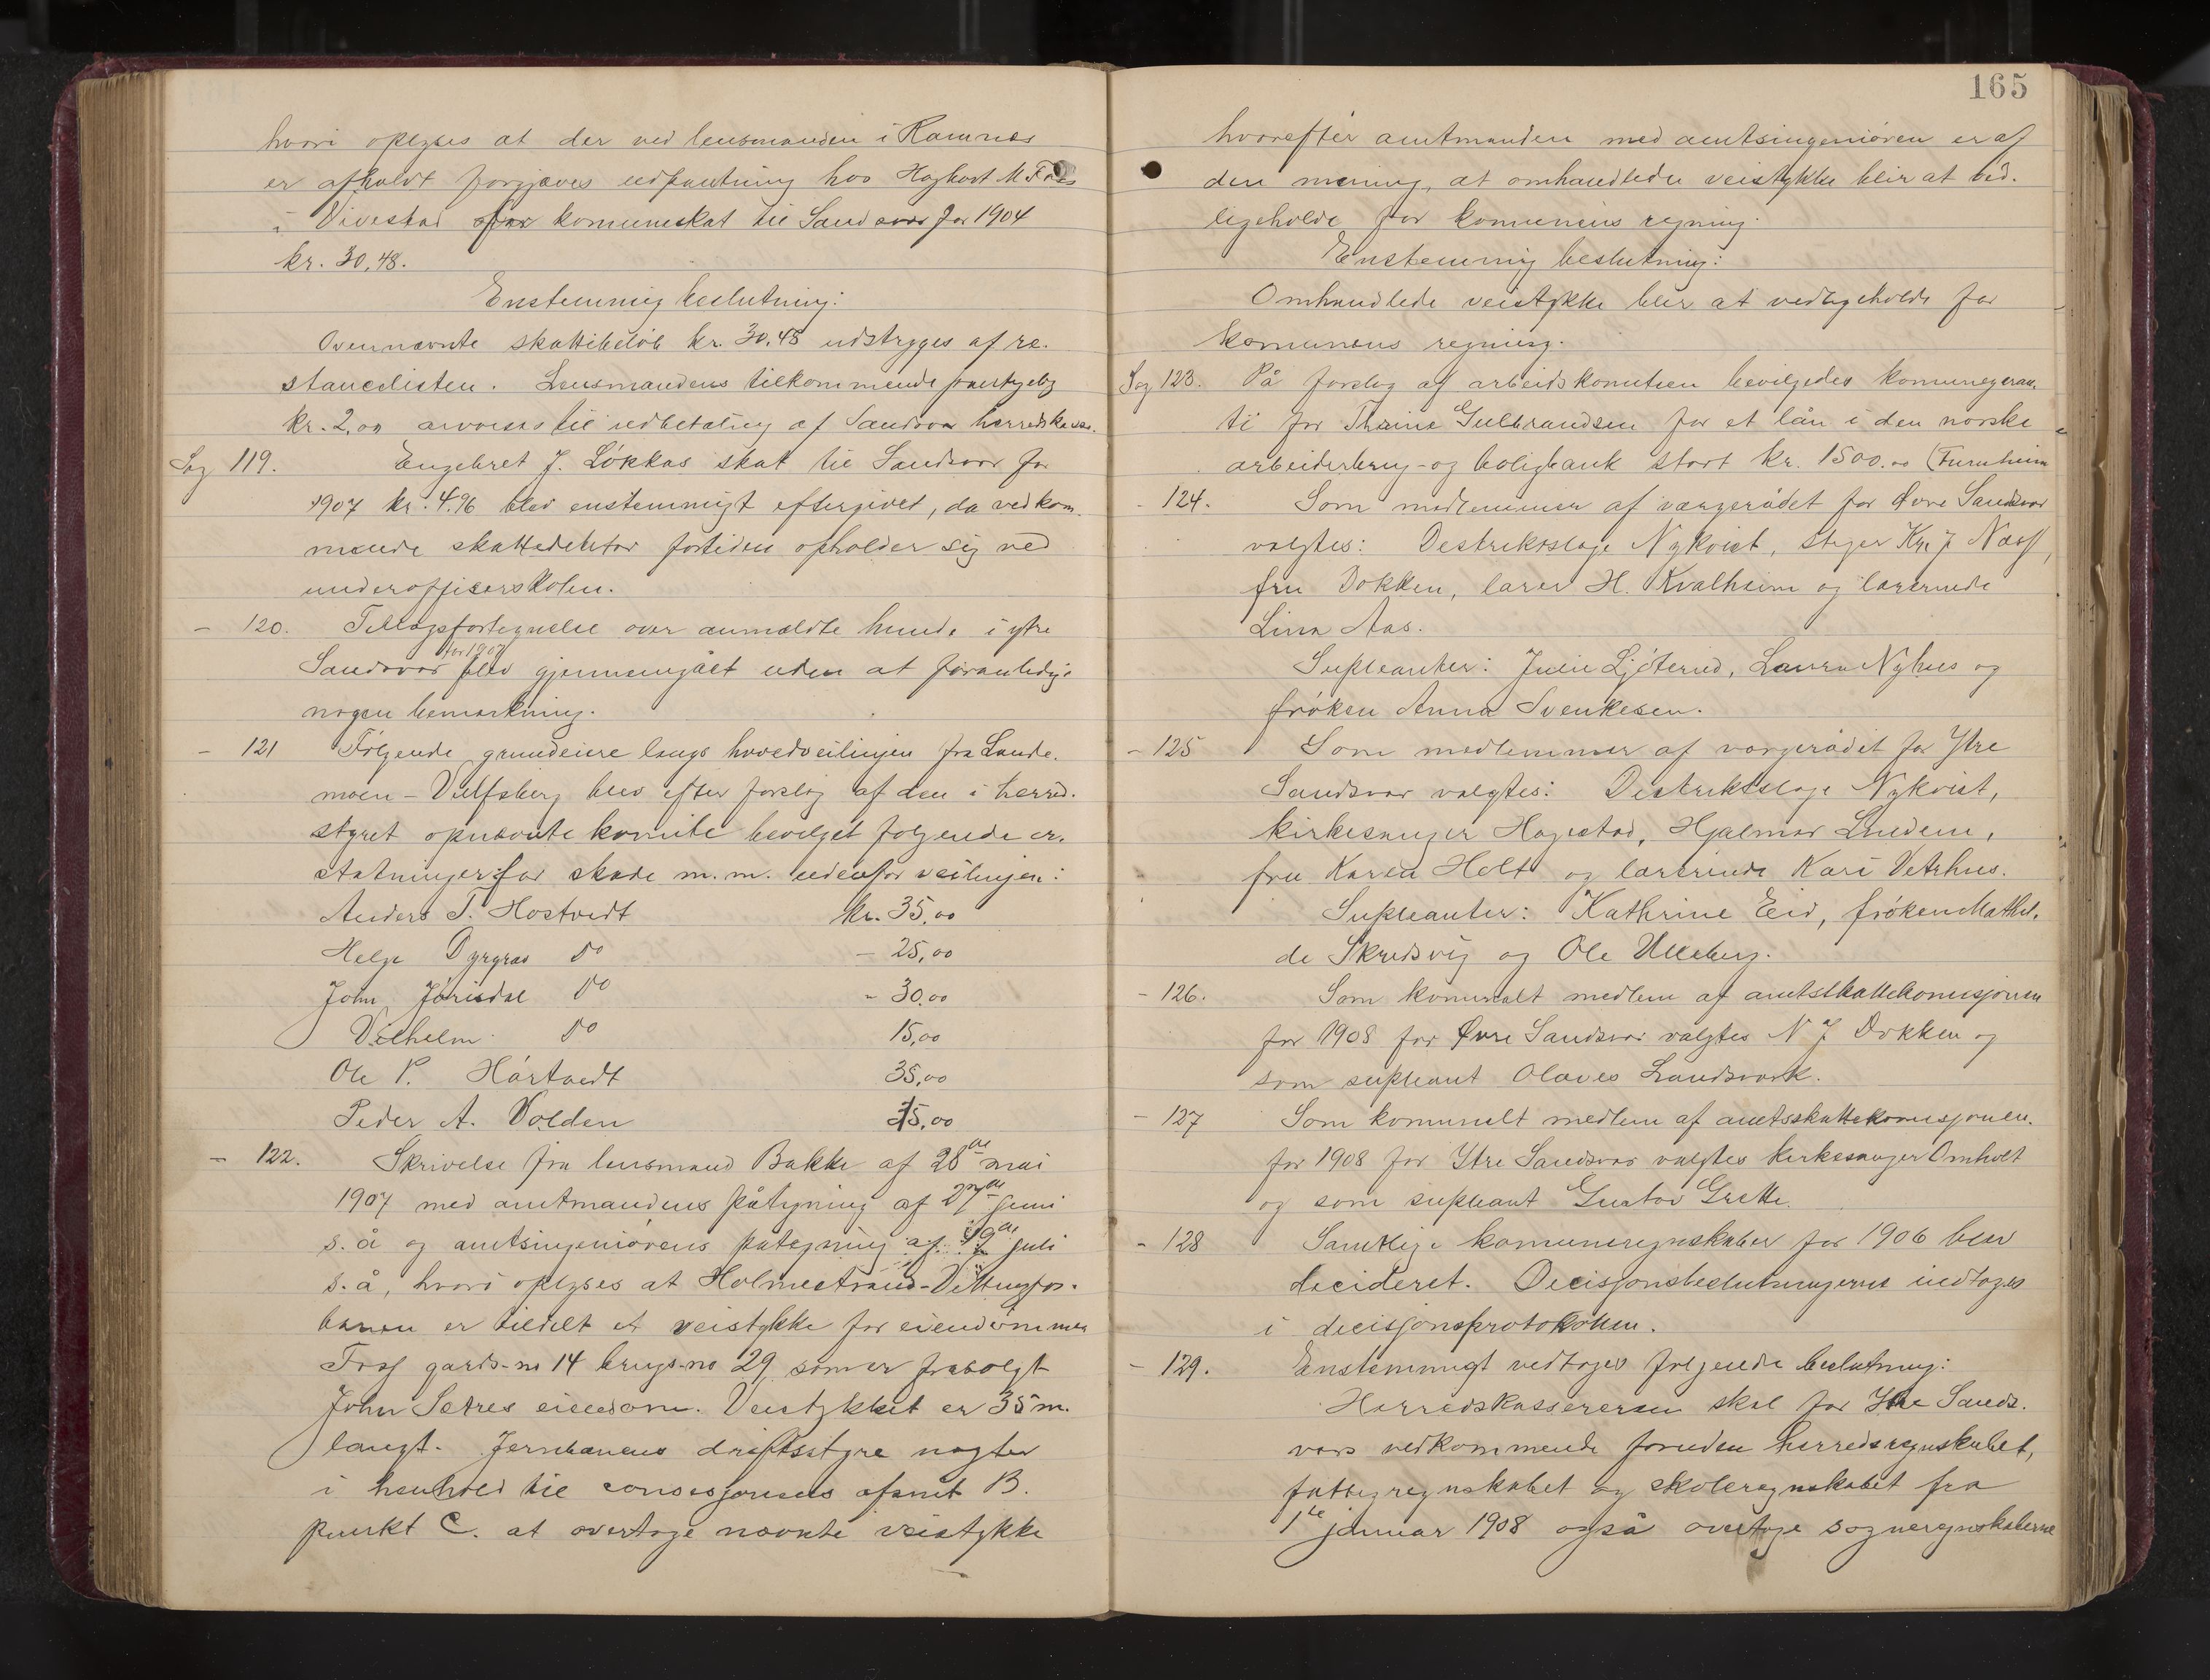 hvori oplyses at der ved lensmanden i Ramnes
er afholdt forgjæves udpantning hos Hagbart M. Foss
i Vivestad for komuneskat til Sandsvær for 1904
kr. 30,48.
Enstemmig beslutning:
Ovennævnte skattebeløb kr. 30.48 udstryges af re-
stancelisten. Lensmandens tilkommende pantegebyr
kr. 2,00 anvises til udbetaling af Sandsvær herredskasse.
Sag 119. Engebret J. Løkkas skat til Sandsvær for
1907 kr. 4.96 blev enstemmigt eftergivet, da vedkom-
mende skattedebitor fortiden opholder sig ved
underofficerskolen.
- 120. Tillægsfortegnelse over anmeldte hunde i ytre
for 1907
Sandsvær blev gjennemgået uden at foranledige
nogen bemærkning.
- 121 Følgende grundeiere langs hovedveilinjen fra Lande-
moen - Vulfsberg blev efter forslag af den i herred-
styret opnævnte komite bevilget følgende er-
statninger for skade m.m. udenfor veilinjen:
Anders T. Hostvedt kr. 35,00
Helge Dyrgrav do - 25,00
John Jørisdal do - 30.00
Vilhelm do 15,00
Ole P. Hostvedt 35,00
Peder A. Volden 15,00
- 122. Skrivelse fra lensmand Bakke af 28de mai
1907 med amtmandens påtegning af 27de juni
s. å og amtsingeniørens påtegning af 19de juli
s. å, hvori oplyses at Holmestrand-Vittingfos-
banen er tildelt et veistykke for eiendommen
Foss gards-no 14 brugs-no 29 som er frasolgt
John Sætres eiendom. Veistykket er 35 m.
langt. Jernbanens driftsstyre nægter
i henhold til concesjonens afsnit B.
punkt C. at overtage nævnte veistykke
165
hvorefter amtmanden med amtsingeniøren er af
den mening, at omhandlede veistykke blir at ved-
ligeholde for komunens regning.
Enstemmig beslutning:
Omhandlede veistykke blir at vedligeholde for
komunens regning.
Sag 123. På forslag af arbeidskomiteen bevilgedes komunegaran-
ti for Thrine Gulbrandsen for et lån i den norske
arbeiderbrug- og boligbank stort kr. 1500.00 (Furuheim
- 124. Som medlemmer af værgerådet for Øvre Sandsvær
valgtes: Destriktslæge Nykvist, stiger Kr. J. Næss,
fru Dokken, lærer H. Kvalheim og lærerinde
Lina Aas.
Supleanter: Julie Ljøterud, Laura Nyhus og
frøken Anna Svenkesen.
- 125 Som medlemmer af værgerådet for Ytre
Sandsvær valgtes: Destriktslæge Nykvist,
kirkesanger Hagestad, Hjalmar Lindem,
fru Karen Holt og lærerinde Kari Vetrhus.
Supleanter: Kathrine Eid, frøken Mathil-
de Skredsvig og Ole Ulleberg.
- 126. Som komunalt medlem af amtsskattekomisjonen
for 1908 for Øvre Sandsvær valgtes N J Dokken og
som supleant Olaves Landsverk.
- 127 Som komunalt medlem af amtsskattekomisjonen
for 1908 for Ytre Sandsvær valgtes kirkesanger Omholt
og som supleant Gustav Grette.
- 128 Samtlige komuneregnskaber for 1906 blev
decideret. Decisjonsbeslutningerne indtoges
i decisjonsprotokollen.
- 129. Enstemmigt vedtoges følgende beslutning:
Herredskassereren skal for Ytre Sands-
værs vedkommende foruden herredsregnskabet,
fattigregnskabet og skoleregnskabet fra
1ste januar 1908 også overtage sogneregnskaberne